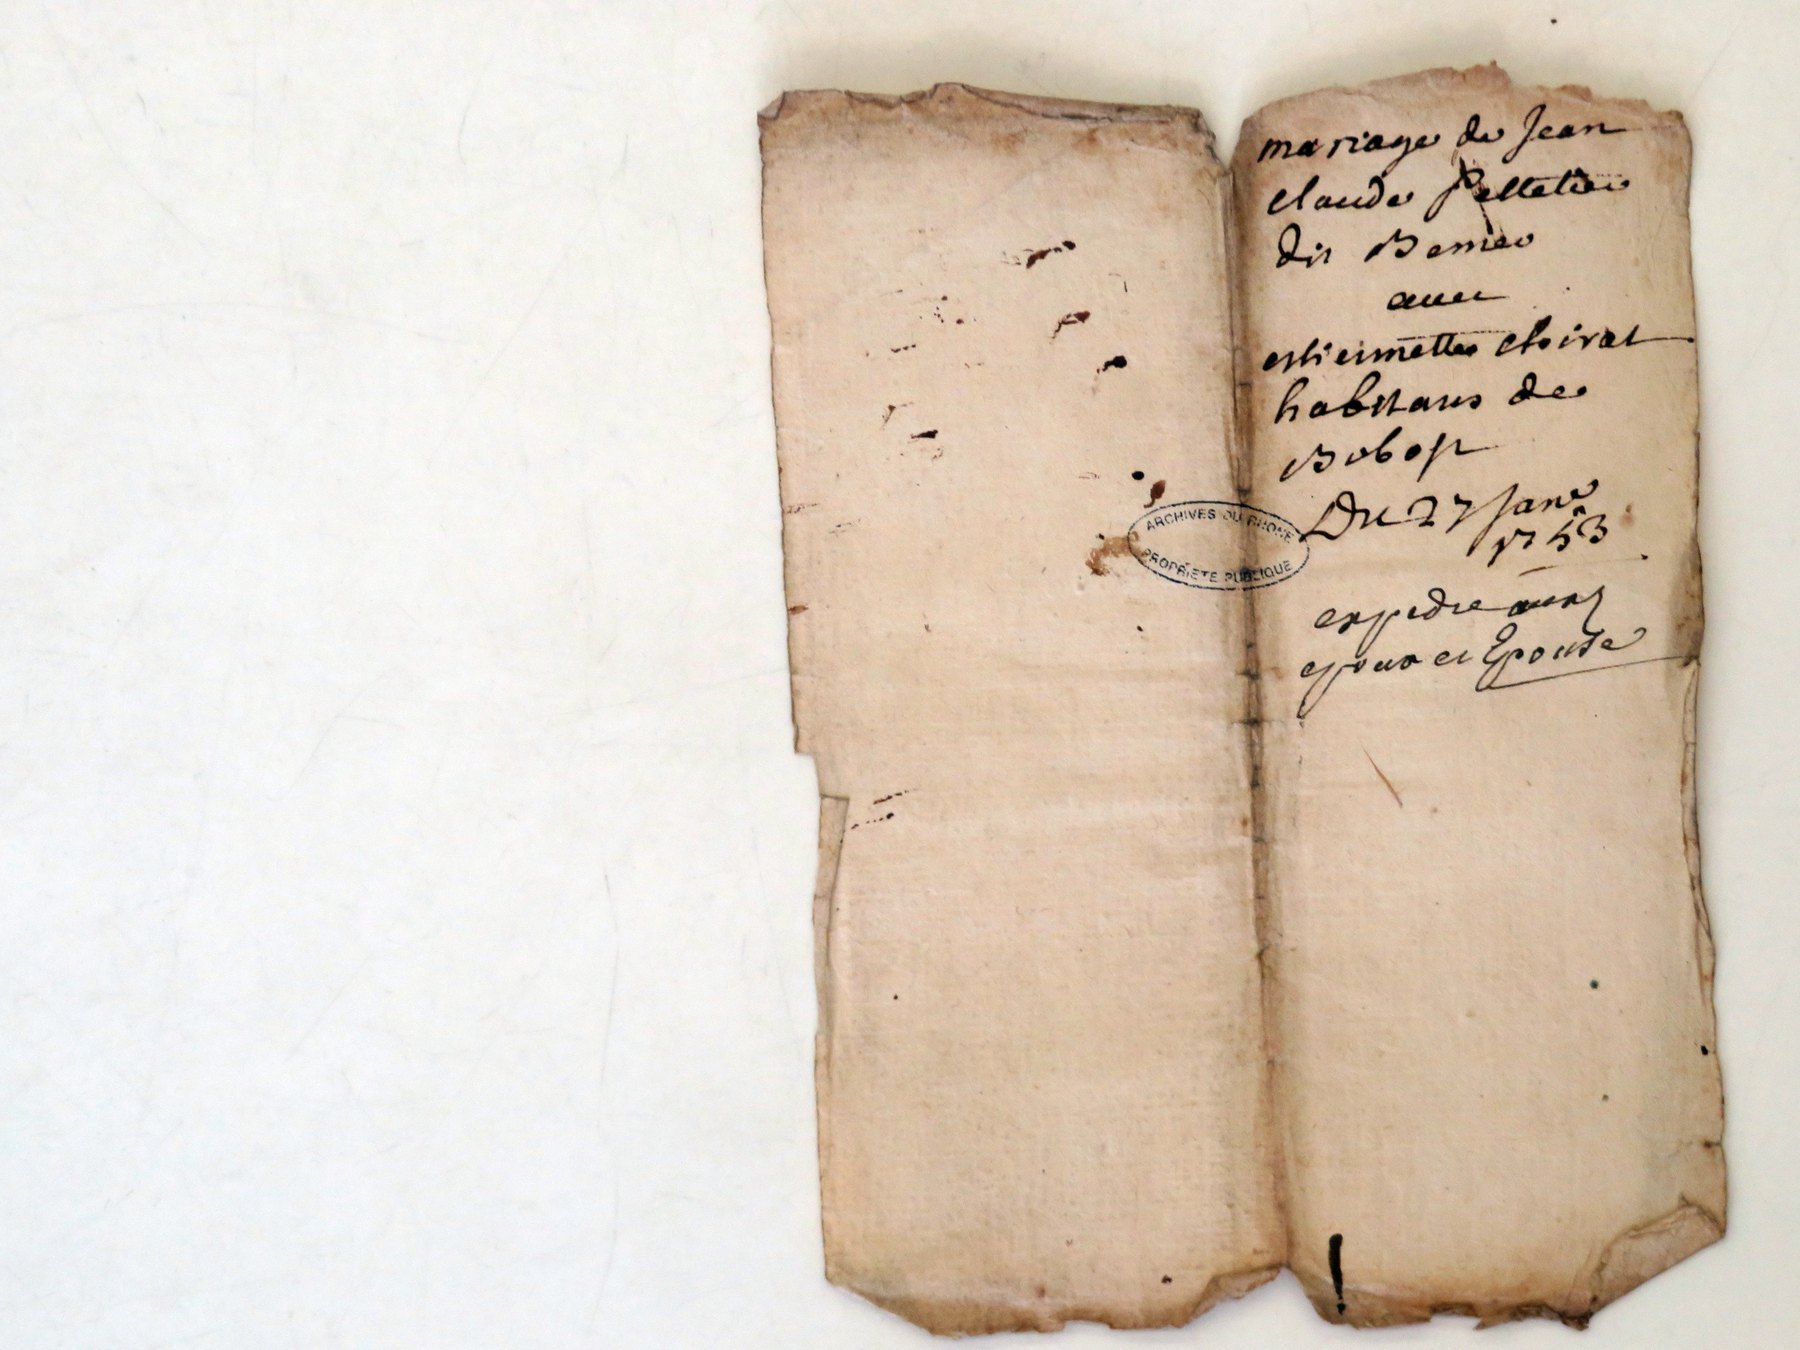 mariage de Jean
claude Pelletier
dit Bernier
avec
estiennette choirat
habitans de
Bobost
Du 27 Janr
1753
expedie aux
epoux et Epouse
ARCHIVES DU RHONE
PROPRIETE PUBLIQUE